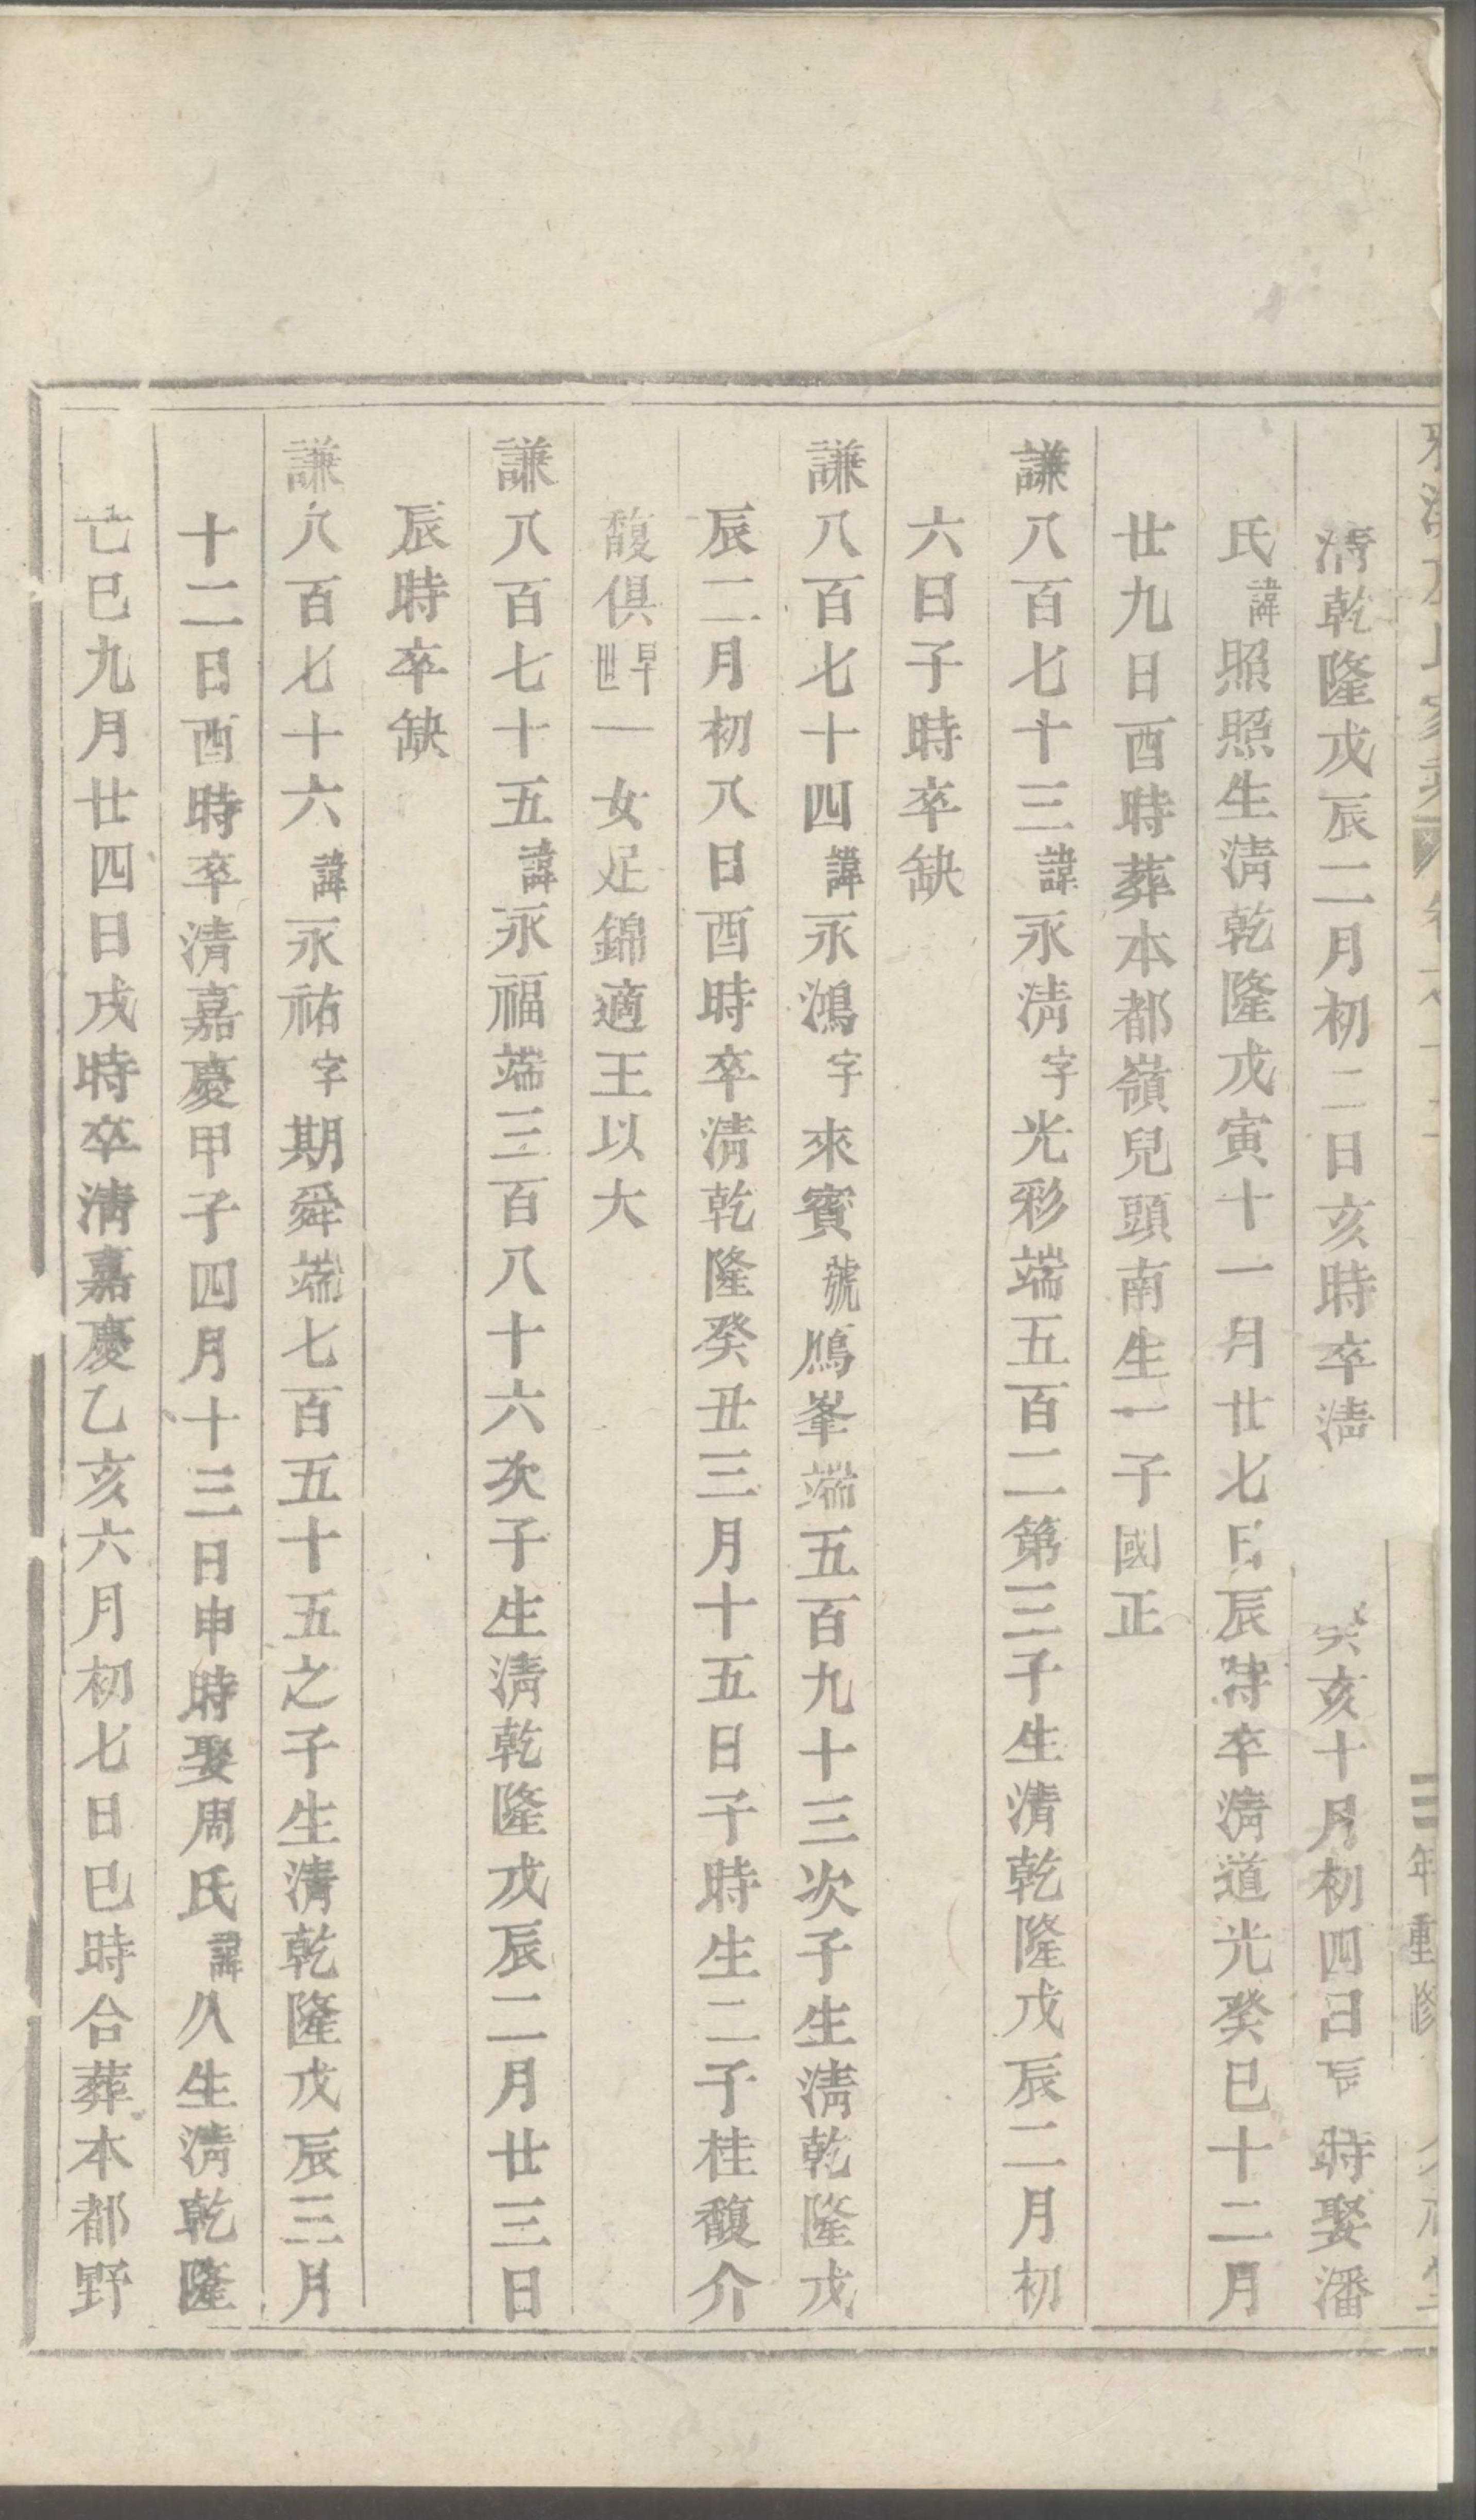 清乾隆戊辰二月初二日亥時卒淸癸亥十月初四日辰時娶潘
氏諱照照生淸乾隆戊寅十一月廿七日辰時卒淸道光癸巳十二月
廿九日酉時葬本都嶺兒頭南生一子國正
謙八百七十三諱永淸字光彩端五百二第三子生淸乾隆戊辰二月初
六日子時卒缺
謙八百七十四諱永鴻字來賓號鴈峯端五百九十三次子生淸乾隆戊
辰二月初八日酉時卒淸乾隆癸丑三月十五日子時生二子桂馥介
馥俱早世一女足錦適王以大
謙八百七十五諱永福端三百八十六次子生淸乾隆戊辰二月廿三日
辰時卒缺
謙八百七十六諱永祐字期舜端七百五十五之子生淸乾隆戊辰三月
十二日酉時卒清嘉慶甲子四月十三日申時娶周氏諱久生淸乾隆
乙巳九月廿四日戌時卒淸嘉慶乙亥六月初七日巳時合葬本都野